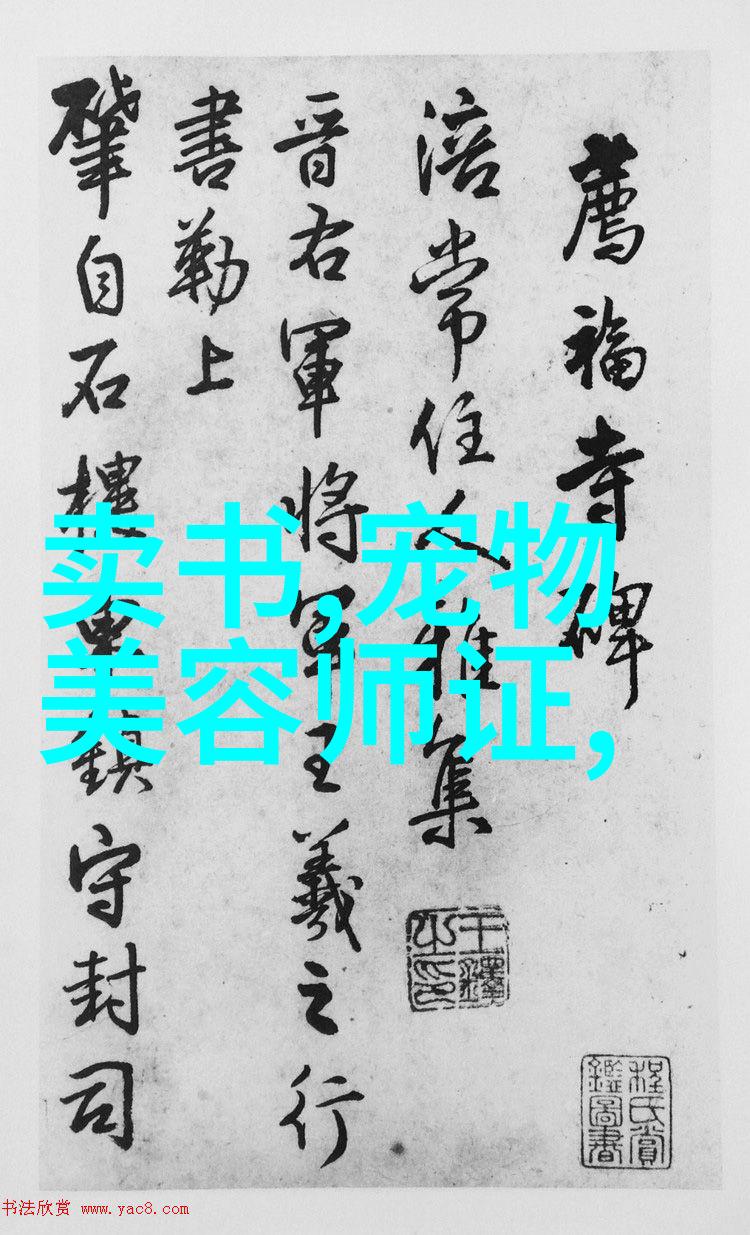 薦福寺碑
涪常住人雅集
晋右軍將軍王羲之行
書勒上
肇自石樓鎮守封司
卖书,宠物
美容师证,
王鐸之印
程氏賞鑑圖書
书法欣赏 www.yac8.com